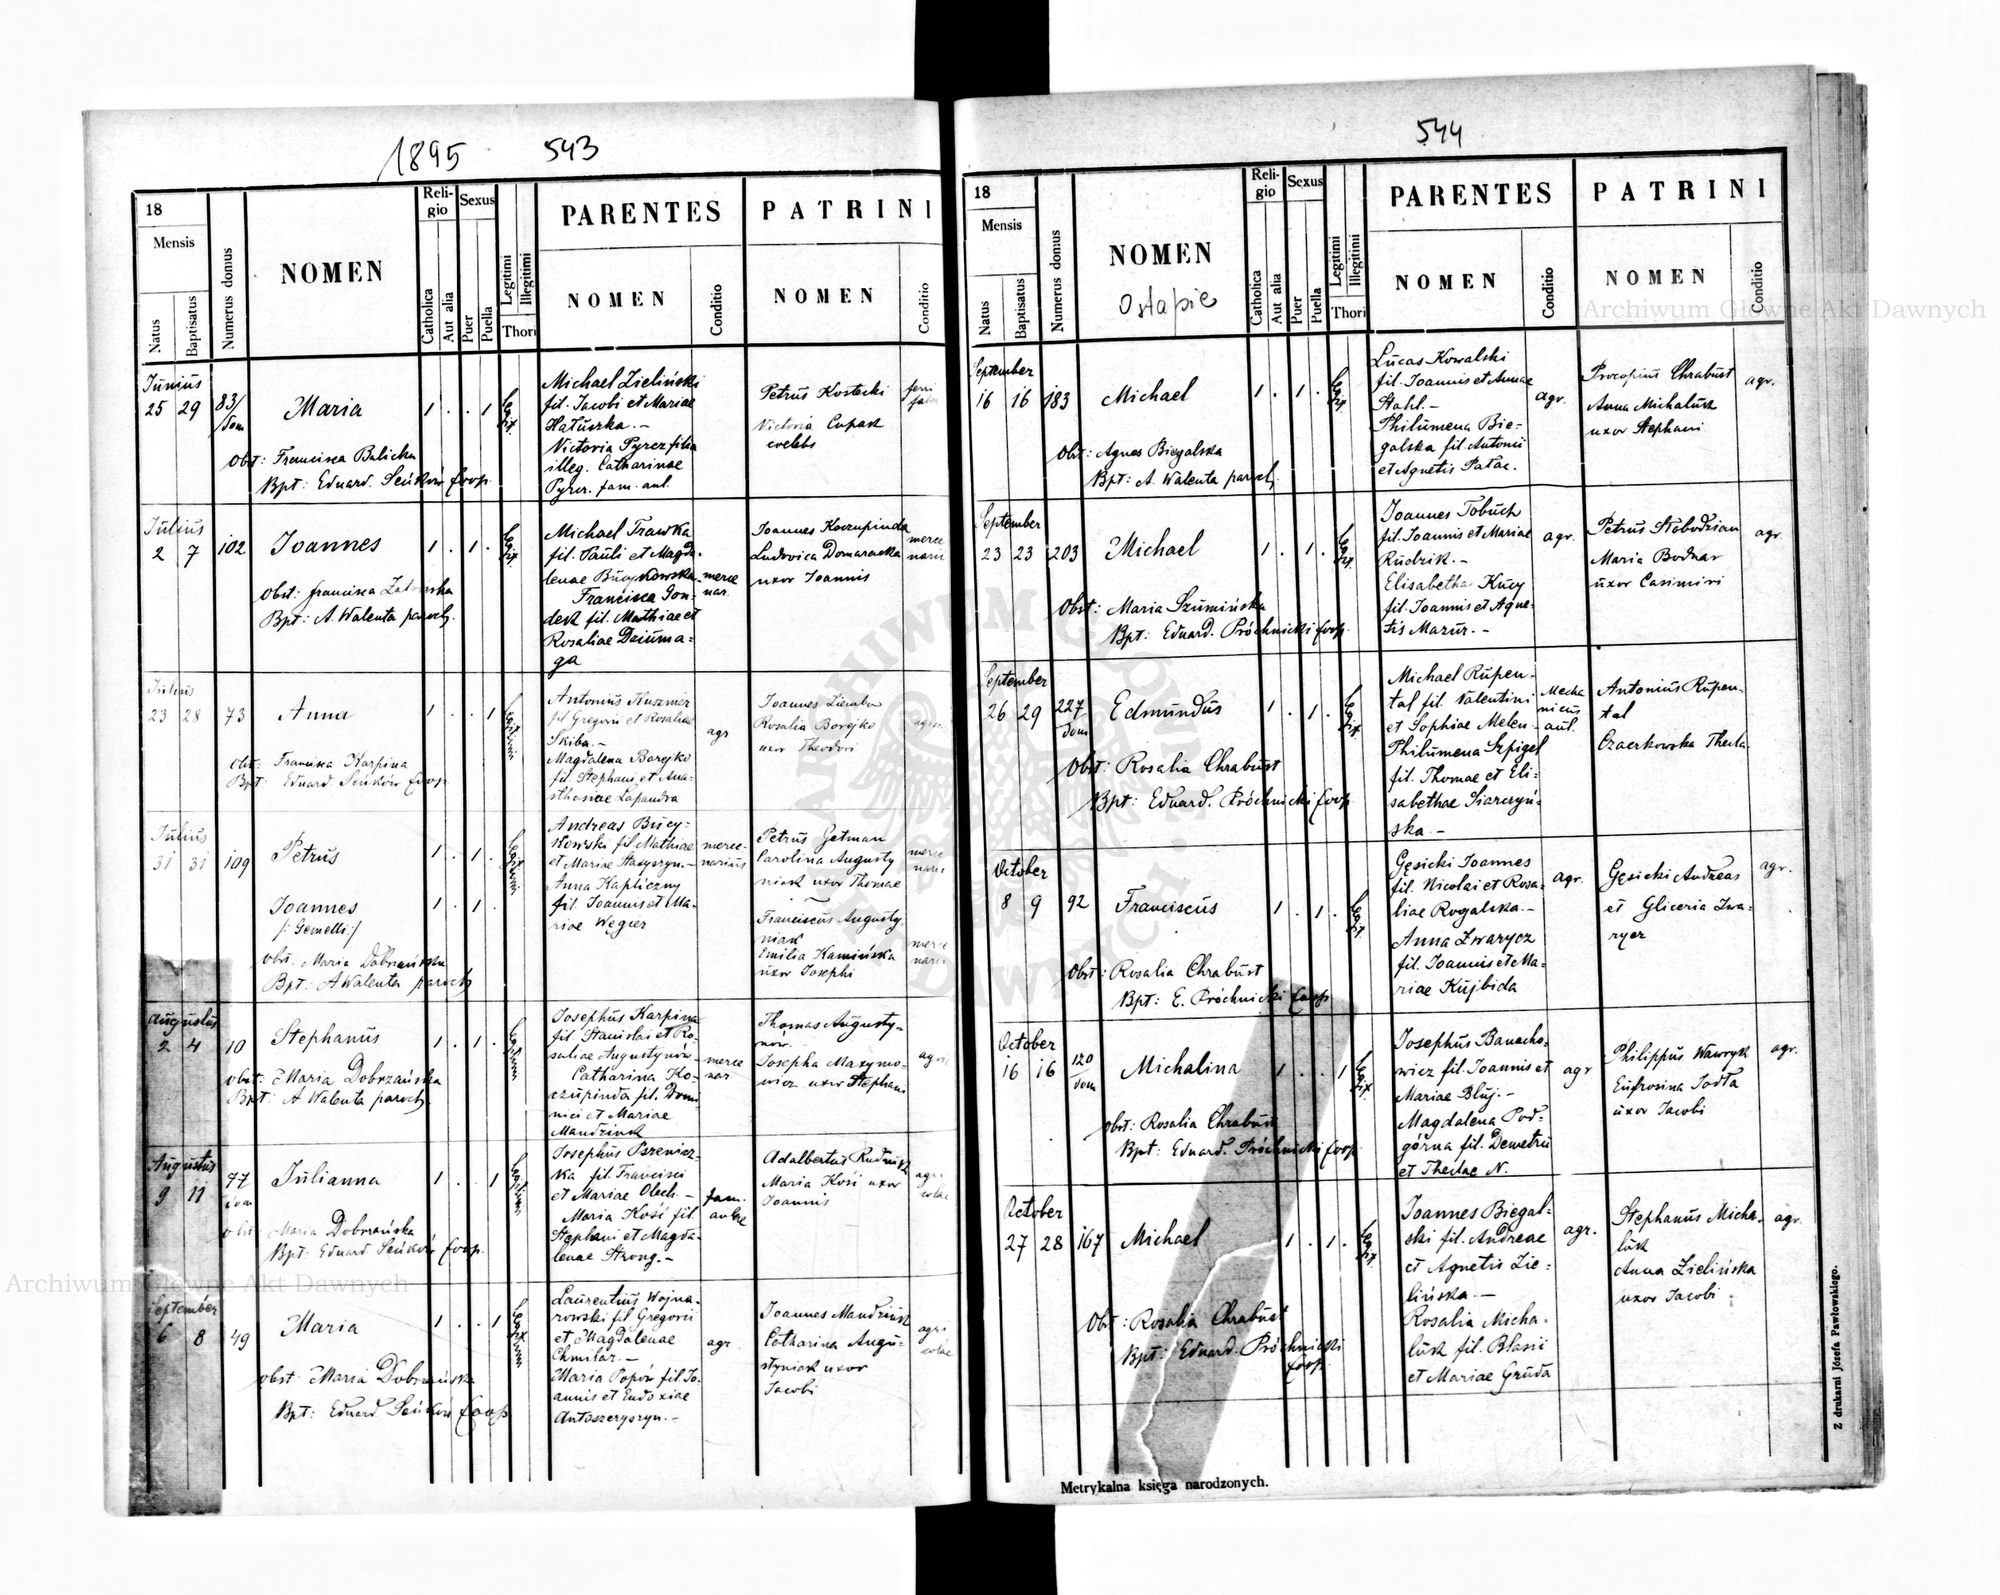 1895
543
18
Mensis
Natus
Baptisatus
Numerus domus
NOMEN
Reli-
gio
Catholica
Aut alia
Sexus
Puer
Puella
Legitimi
Illegitimi
Thori
PARENTES
NOMEN
Conditio
PATRINI
NOMEN
Conditio
Junius
25 29 83/
Dom
Maria
1 . . 1
Obst: Francisca Balicka
Bpt: Eduard. Seńków Coop.
Michael Zieliński
fil. Jacobi et Mariae
Hałuszka. -
Victoria Pyrcz filia
illeg. Catharinae
Pyrcz. fam. aul.
Petrus Kostecki
Victoria Cupak
coelebs
Julius
2 7 102
Joannes
1 . 1 .
Obst: Francisca
Bpt: A. Walenta paroch.
Michael Trawka
fil. Pauli et Magda-
lenae Buczkowska
Francisca Gon-
dek fil. Mathiae et
Rosaliae Dziuma-
ga
merce
nar.
Joannes Koczupinda
Ludovica Domaracka
uxor Joannis
merce
narii
Julius
23 28 73
Anna
1 . . 1
Obst: Francisca Karpina
Bpt: Eduard Seńków Coop.
Antonius Kusznier
fil Gregorii et Rosaliae
Skiba. -
Magdalena Borejko
fil. Stephani et Ana-
sthasiae Łapandra
agr
Joannes Ziemba
Rosalia Borejko
uxor Theodori
Julius
31 31 109
Petrus
1 . 1 .
Joannes
1 . 1 .
/: Gemelli :/
obst: Maria Dobrzańska
Bpt: A Walenta paroch
Andreas Bucy-
kowski fil Mathiae
et Mariae Stasyszyn. -
Anna Kapliczny
fil. Joannis et Ma-
riae Węgier
merce-
narius
Petrus Getman
Carolina Augusty
niak uxor Thomae
Franciscus Augusty-
niak
Emilia Kamińska
uxor Josephi
Augustus
2 4 10
Stephanus
1 . 1 .
obst: Maria Dobrzańska
Bpt: A Walenta paroch.
Josephus Karpina
fil. Stanislai et Ro-
saliae Augustynów -
Catharina Ko-
czupinda fil. Domi-
nici et Mariae
Mandziuk
merce
nar
Thomas Augusty-
nów.
Josepha Maxymo-
wicz uxor Stephani
Augustus
9 11 77
dom
Julianna
1 . . 1
obst: Maria Dobrzańska
Bpt: Eduard Seńków Coop.
Josephus Pszenicz-
ka fil. Francisci
et Mariae Olech. -
Maria Kość fil.
Stephani et Magda-
lenae Strong. -
fam.
aulae
Adalbertus Rudnik
Maria Kość uxor
Joannis
agri
colae
September
6 8 49
Maria
1 . . 1
obst Maria Dobrzańska
Bpt: Eduard Seńków Coop
Laurentius Wojna-
rowski fil Gregorii
et Magdalenae
Chmilar. -
Maria Popów fil Jo-
annis et Eudoxiae
Antoszczyszyn. -
agr
Joannes Mandziuk
Catharina Augu-
styniak uxor
Jacobi
agri
colae
544
18
Mensis
Natus
Baptisatus
Numerus domus
NOMEN
Ostapie
Reli-
gio
Catholica
Aut alia
Sexus
Puer
Puella
Legitimi
Illegitimi
Thori
PARENTES
NOMEN
Conditio
PATRINI
NOMEN
Conditio
September
16 16 183
Michael
1 . 1 .
Obst: Agnes Biegalska
Bpt: A. Walenta paroch.
Lucas Kowalski
fil. Joannis et Annae
Stahl. -
Philumena Bie-
galska fil. Antonii
et Agnetis Pałac.
agr.
Procopius Chrabust
Anna Michaluk
uxor Stephani
agr.
September
23 23 203
Michael
1 . 1 .
Obst: Maria Szumińska
Bpt: Eduard. Próchnicki Coop.
Joannes Tobuch
fil. Joannis et Mariae
Rudzik. -
Elisabetha Kucy
fil. Joannis et Agne-
tis Mazur. -
agr.
Petrus Słobodzian
Maria Bodnar
uxor Casimiri
agr.
September
26 29 227
dom
Edmundus
1 . 1 .
Obst: Rosalia Chrabust
Bpt: Eduard. Próchnicki Coop.
Michael Rupen-
tal fil. Valentini
et Sophiae Melen -
Philumena Szpigel
fil. Thomae et Eli-
sabethae Siarczyń-
ska. -
Mecha
nicus
aul.
Antonius Rupen-
tal
Czaerkowska Thecla.
October
8 9 92
Franciscus
1 . 1 .
Obst: Rosalia Chrabust
Bpt: E. Próchnicki Coop.
Gęsicki Joannes
fil. Nicolai et Rosa-
liae Rogalska. -
Anna Zwarycz
fil. Joannis et Ma-
riae Kujbida
agr.
Gęsicki Andreas
et Gliceria Zwa-
rycz
agr.
October
16 16 120
dom
Michalina
1 . . 1
obst: Rosalia Chrabust
Bpt: Eduard. Próchnicki Coop.
Josephus Banacho-
wicz fil. Joannis et
Mariae Bluj. -
Magdalena Pod-
górna fil. Demetrii
et Theclae N.
agr
Philippus Wawryk
Eufrosina Jodła
uxor Jacobi
agr.
October
27 28 167
Michael
1 . 1 .
Obst: Rosalia Chrabust
Bpt: Eduard. Próchnicki
Coop.
Joannes Biegal-
ski fil. Andreae
et Agnetis Zie-
lińska. -
Rosalia Micha-
luk fil. Blasii
et Mariae Gruda
agr.
Stephanus Micha-
luk
Anna Zielińska
uxor Jacobi
agr.
Metrykalna księga narodzonych.
Z drukarni Józefa Pawłowskiego.
Archiwum Główne Akt Dawnych
Archiwum Główne Akt Dawnych
ARCHIWUM GŁÓWNE AKT DAWNYCH